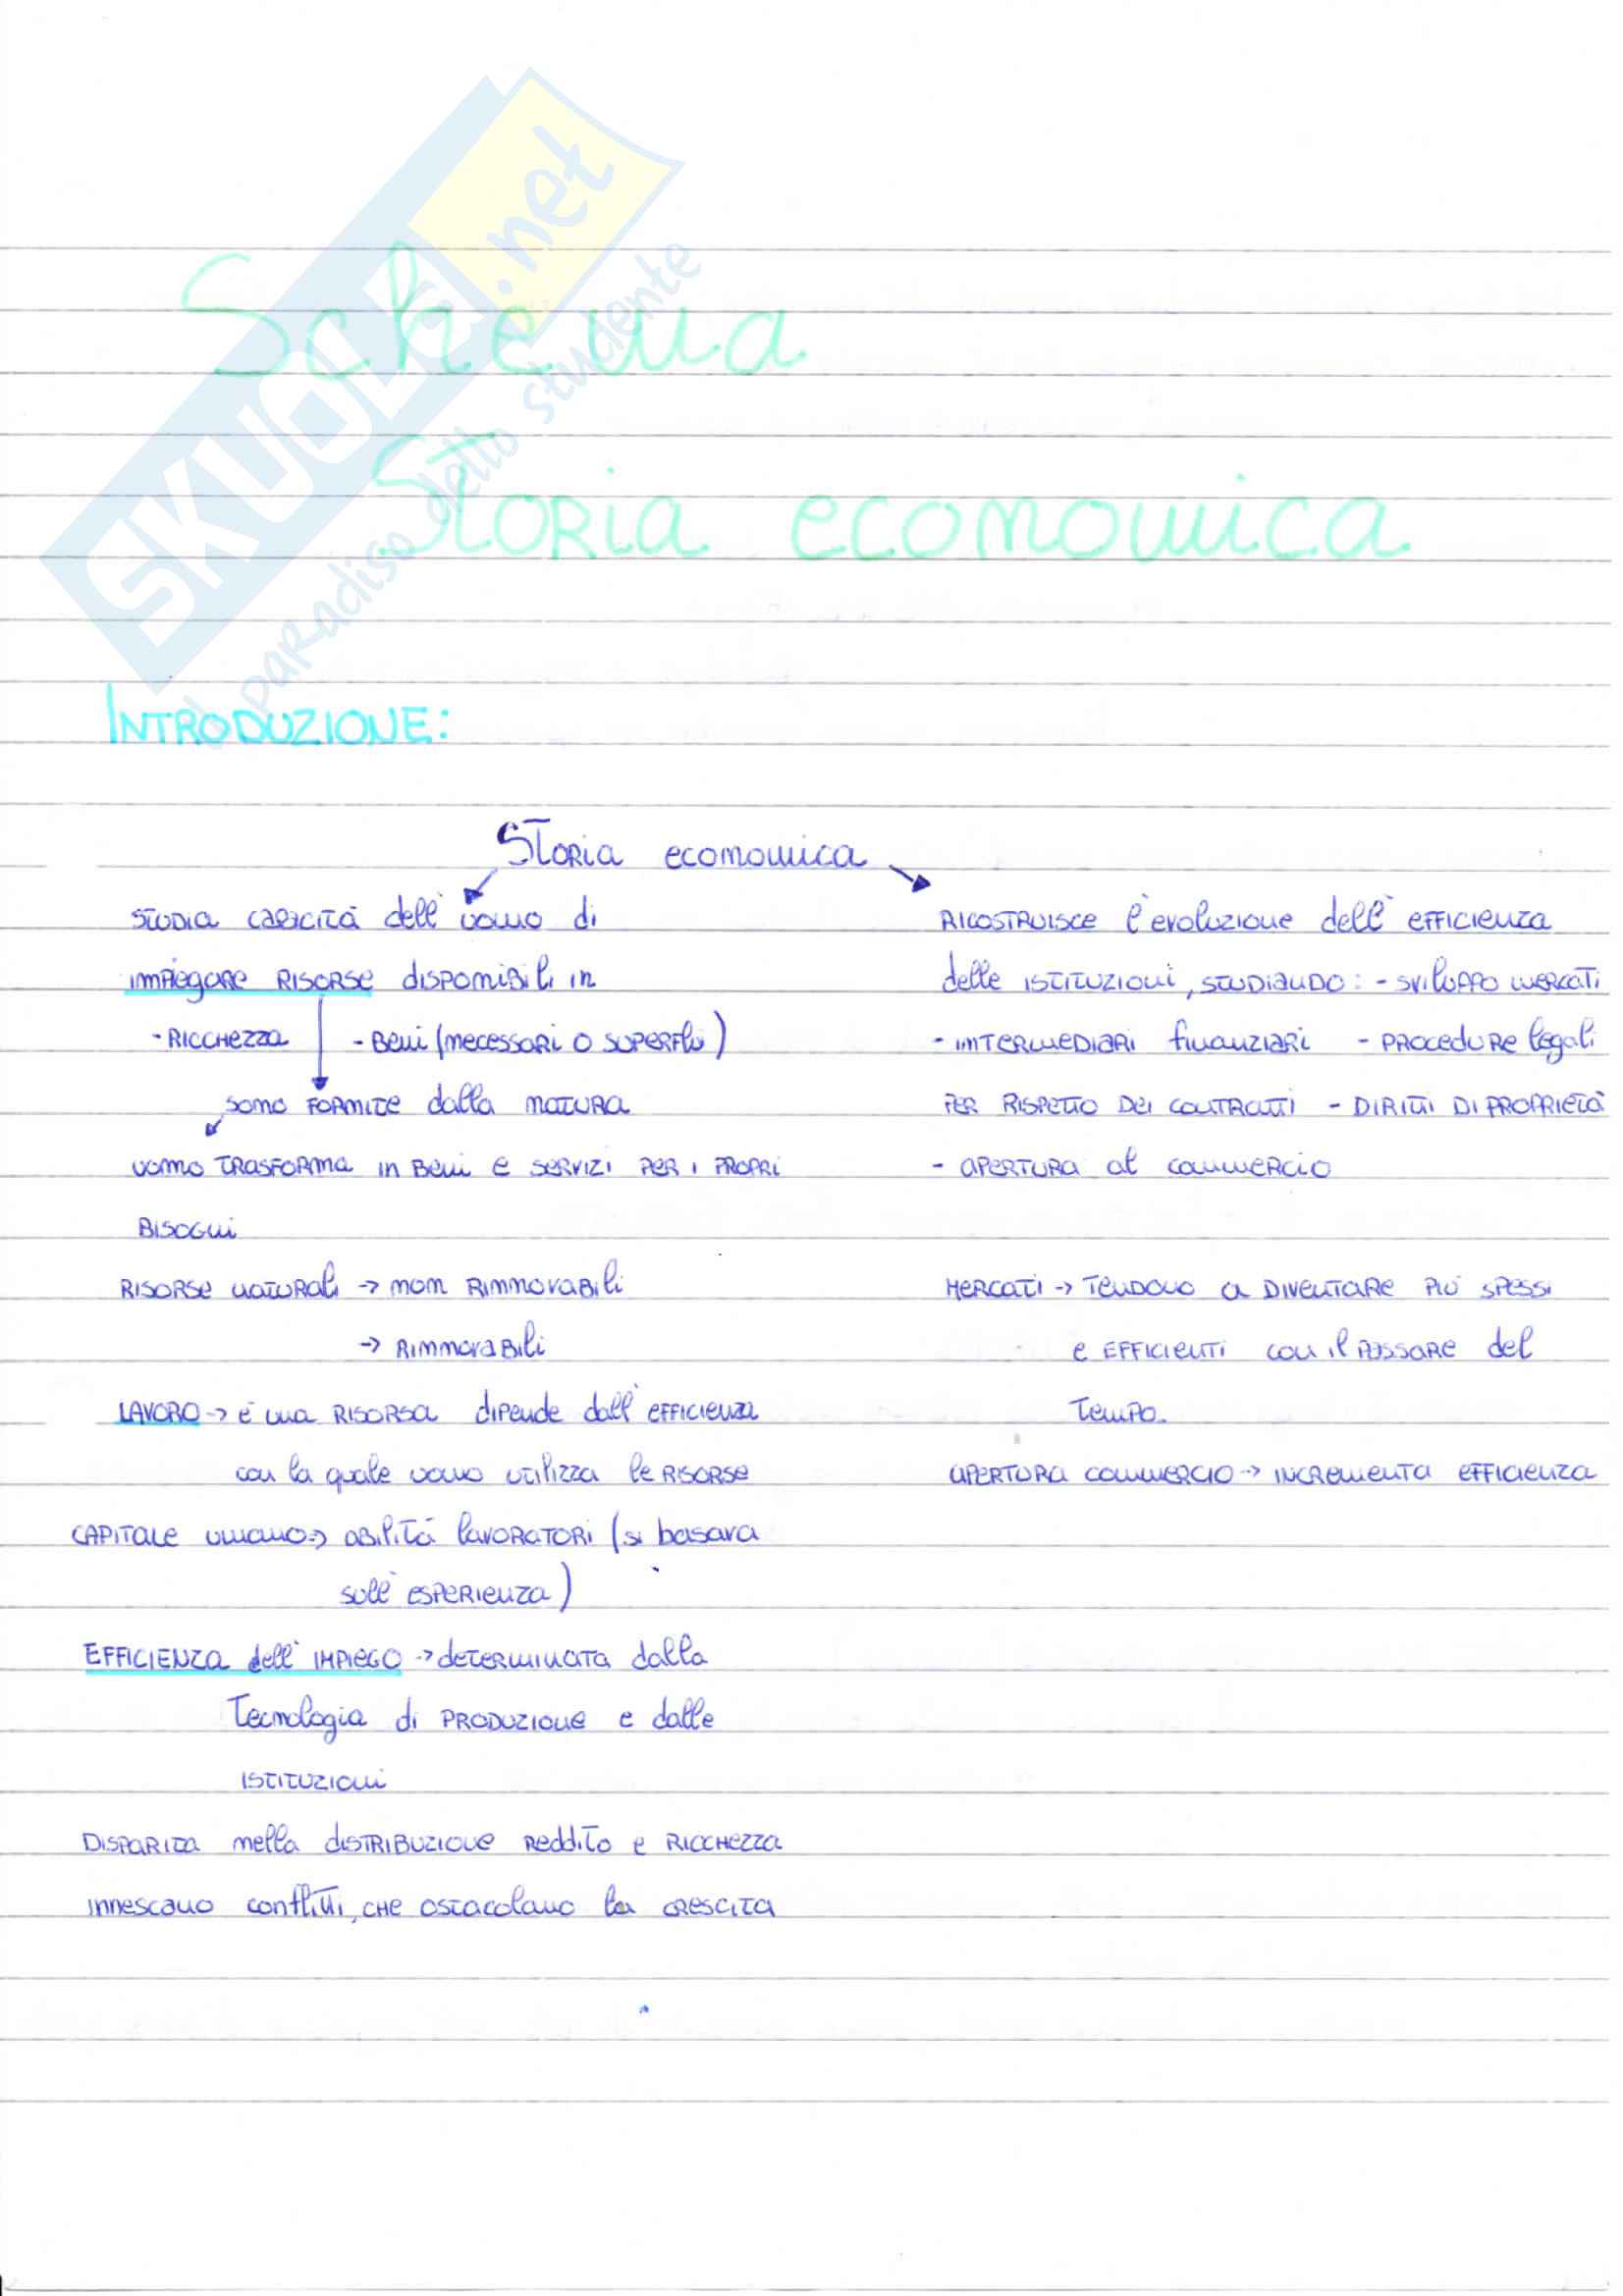 SKUOLA.net
il paradiso dello studente
Schema
Storia economica
INTRODUZIONE:
Storia economica
studia capacità dell'uomo di
impiegare risorse disponibili in
- Ricchezza - Beni (necessari o superflui)
sono fornite dalla natura
uomo trasforma in beni e servizi per i propri
bisogni
Risorse naturali → non rinnovabili
→ rinnovabili
LAVORO → è una risorsa dipende dall'efficienza
con la quale uomo utilizza le risorse
CAPITALE umano → abilità lavoratori (si basava
sull'esperienza)
EFFICIENZA dell'IMPIEGO → determinata dalla
Tecnologia di produzione e dalle
istituzioni
Disparità nella distribuzione reddito e ricchezza
innescano conflitti, che ostacolano la crescita
Ricostruisce l'evoluzione dell'efficienza
delle istituzioni, studiando: - sviluppo mercati
- intermediari finanziari - procedure legali
per rispetto dei contratti - diritti di proprietà
- apertura al commercio
Mercati → tendono a diventare più spessi
e efficienti con il passare del
tempo.
apertura commercio → incrementa efficienza